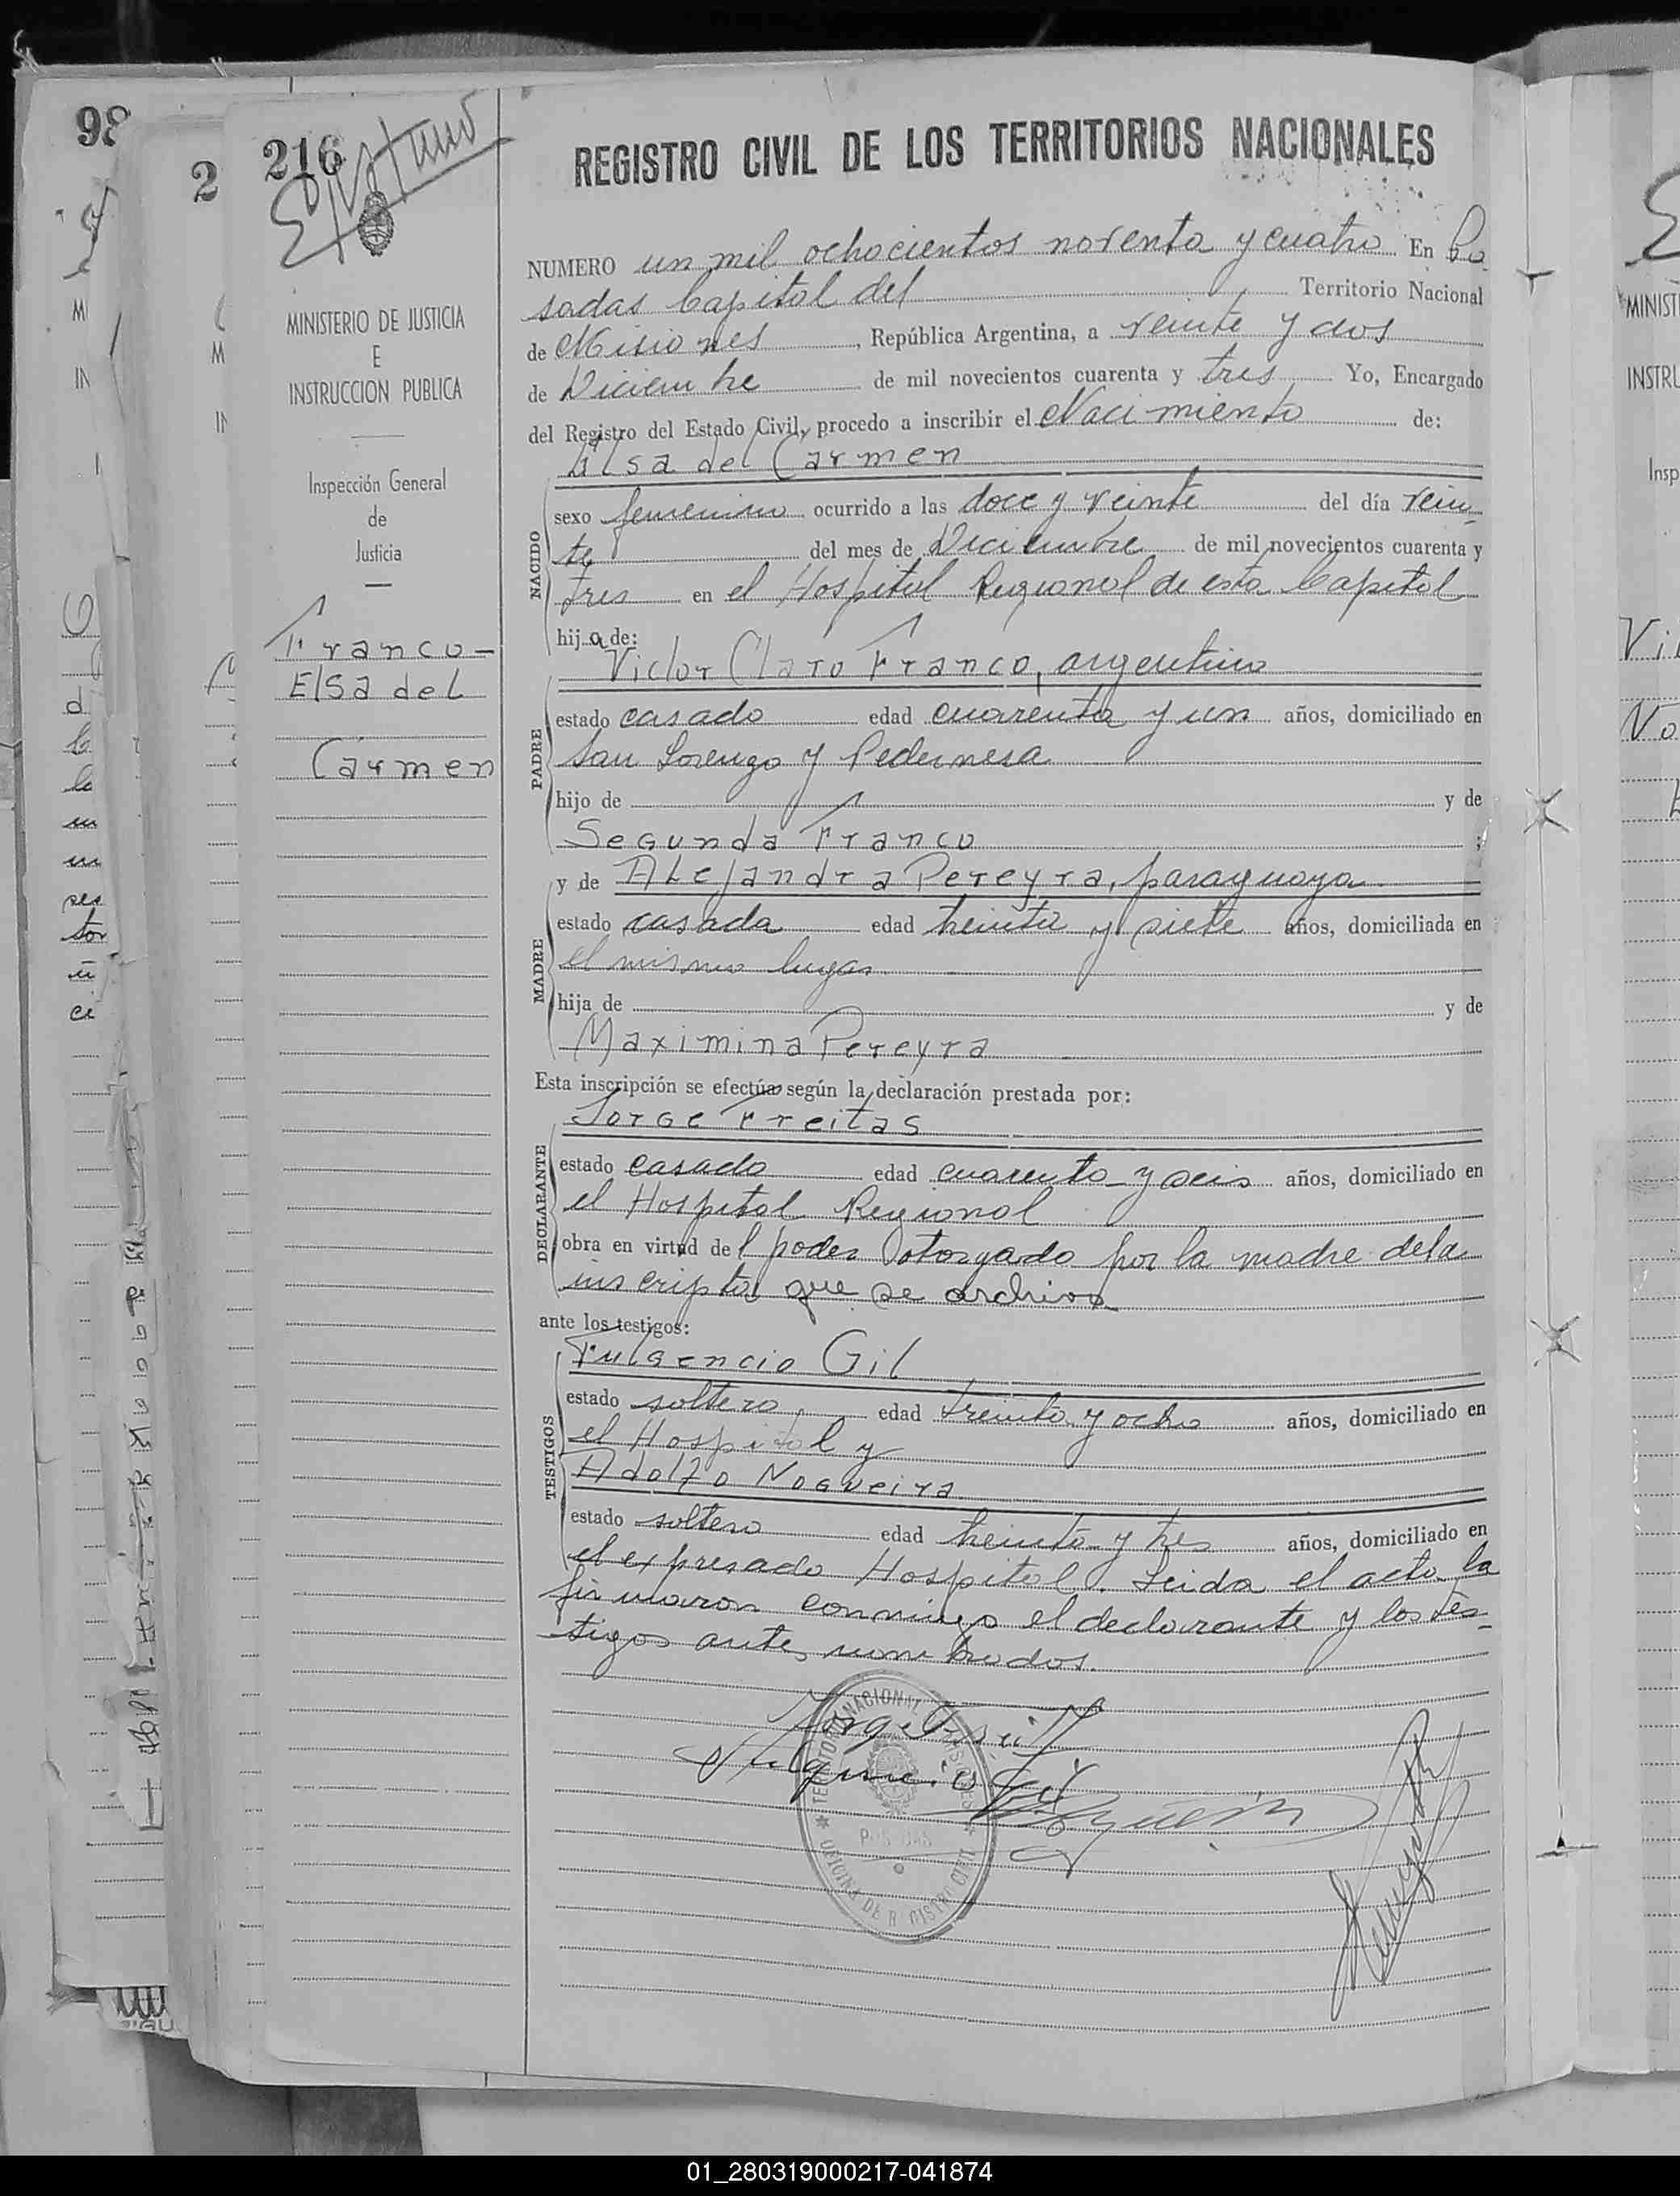 98
2
216
REGISTRO CIVIL DE LOS TERRITORIOS NACIONALES
NUMERO un mil ochocientos noventa y cuatro En Po
sadas Capital del Territorio Nacional
de Misiones, República Argentina, a veinte y dos
de Diciembre de mil novecientos cuarenta y tres Yo, Encargado
del Registro del Estado Civil, procedo a inscribir el Nacimiento de:
Elsa del Carmen
NACIDO
sexo femenino ocurrido a las doce y veinte del día vein-
te del mes de Diciembre de mil novecientos cuarenta y
tres en el Hospital Regional de esta Capital
hija de:
Victor Claro Franco, argentino
PADRE
estado casado edad cuarenta y un años, domiciliado en
San Lorenzo y Pedernera
hijo de y de
Segunda Franco ;
y de Alejandra Pereyra, paraguaya
MADRE
estado casada edad treinta y siete años, domiciliada en
el mismo lugar
hija de y de
Maximina Pereyra
Esta inscripción se efectúa según la declaración prestada por:
Jorge Freitas
DECLARANTE
estado casado edad cuarenta y seis años, domiciliado en
el Hospital Regional
obra en virtud del poder otorgado por la madre de la
inscripta que se archiva
ante los testigos:
Fulgencio Gil
TESTIGOS
estado soltero, edad treinta y ocho años, domiciliado en
el Hospital y
Adolfo Nogueira
estado soltero edad treinta y tres años, domiciliado en
el expresado Hospital. Leida el acta la
firmaron conmigo el declarante y los tes-
tigos antes nombrados.
TERRITORIO NACIONAL MISIONES
POSADAS
OFICINA DE REGISTRO CIVIL
MINISTERIO DE JUSTICIA
E
INSTRUCCION PUBLICA
Inspección General
de
Justicia
Franco-
Elsa del
Carmen
MINIST
INSTRU
Insp
01_280319000217-041874